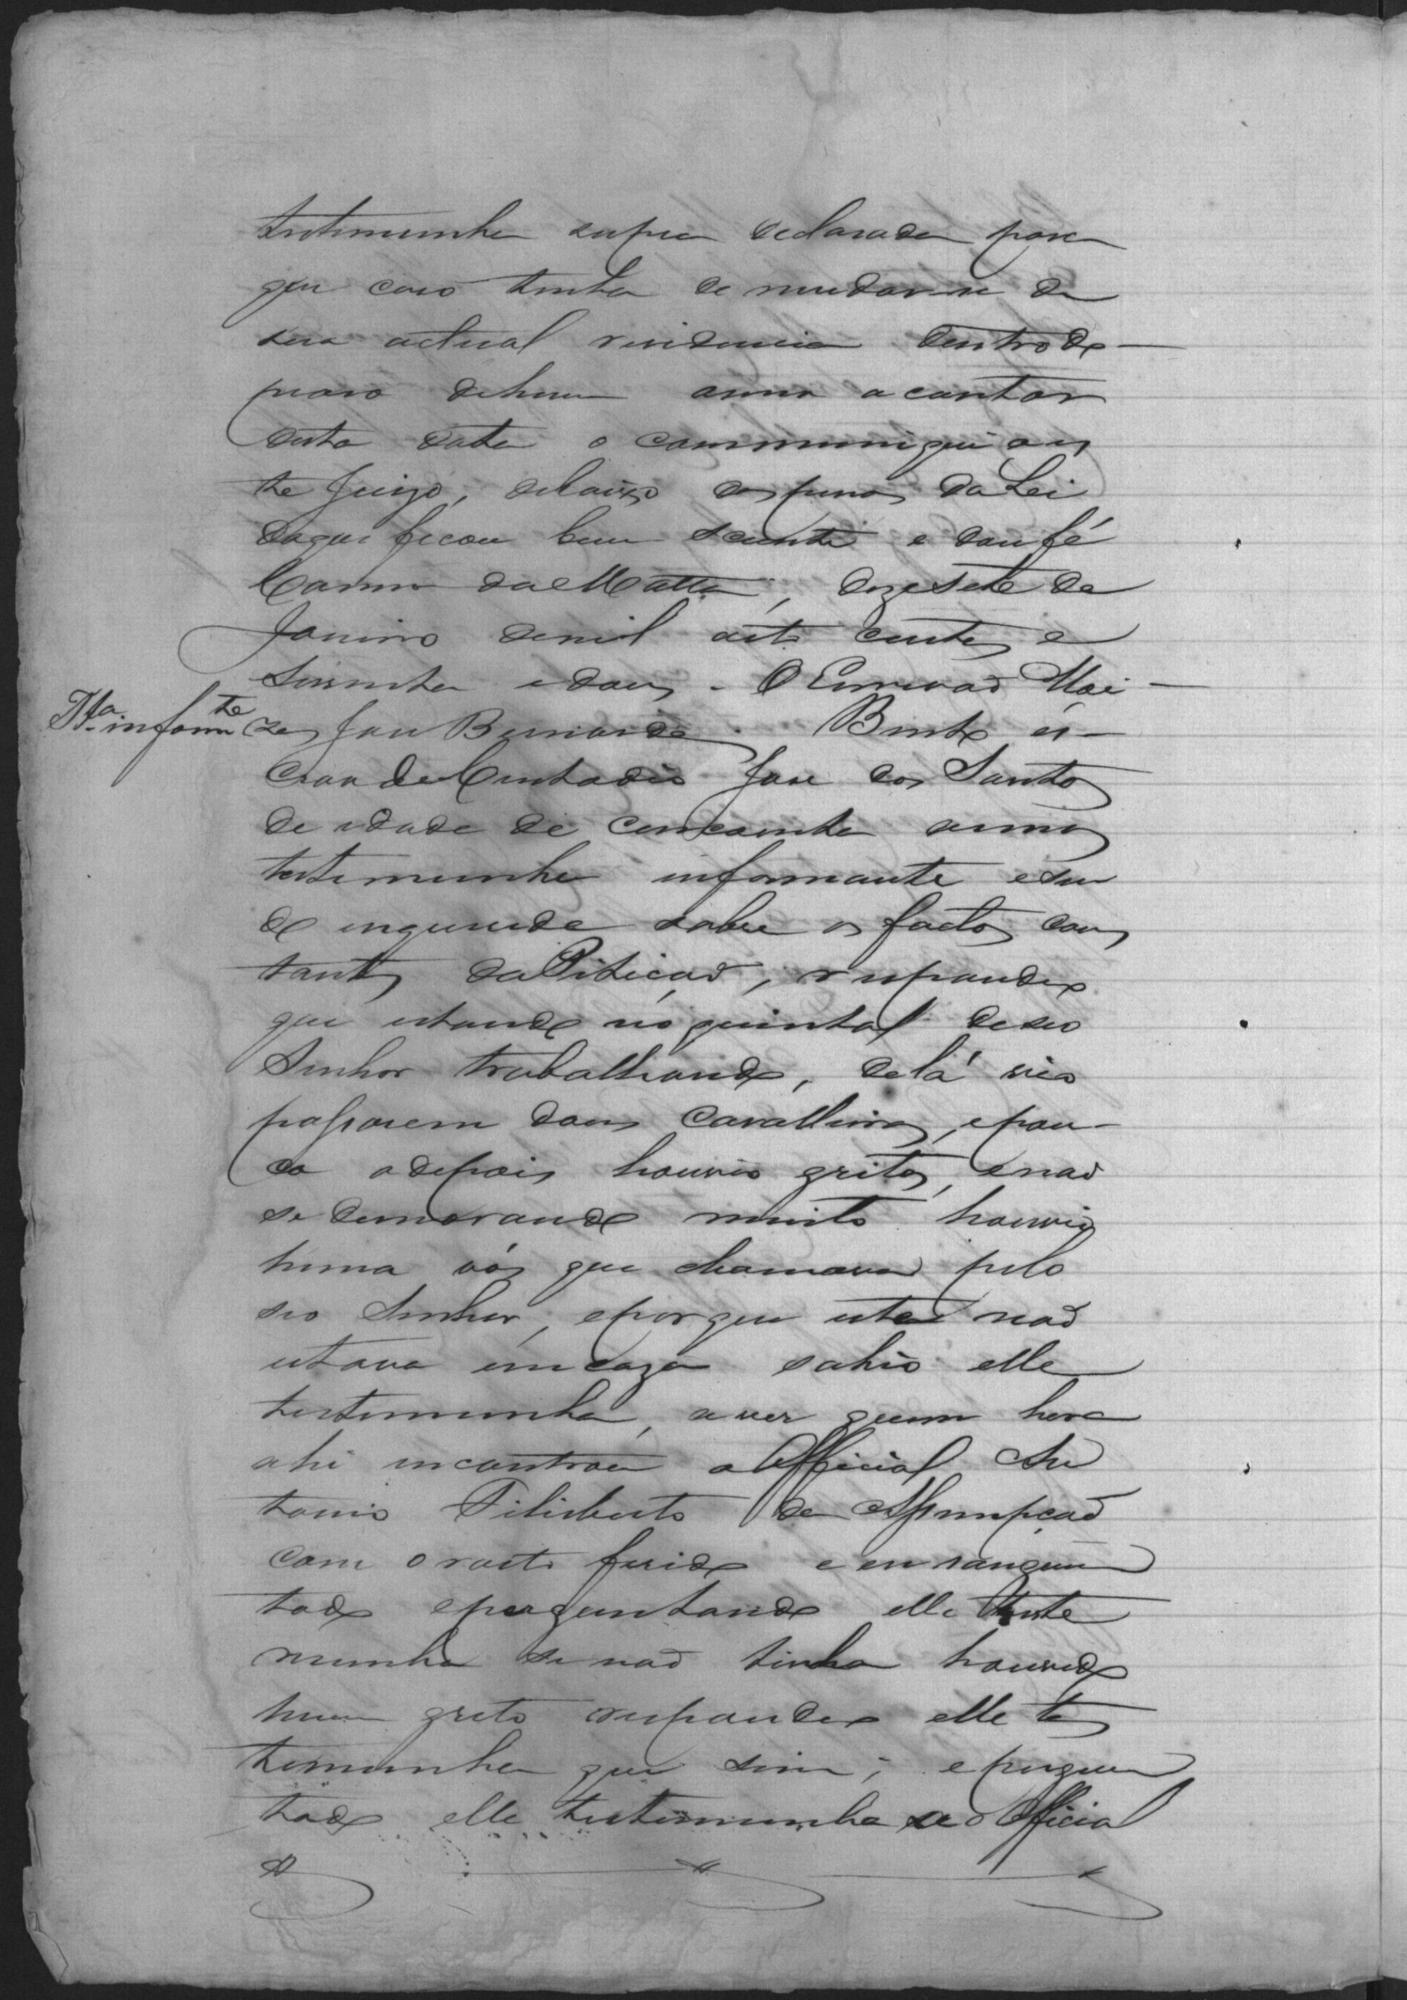 testimunha supra declarada para
que caso tenha de mudar-se de
sua actual residencia dentro do
praso de hum anno a contar
desta data o communique a es
te Juizo, debaixo das penas da Lei
do que ficou bem sciente e dou fé
Carmo da Matta, dezesete de
Janeiro de mil oito centos e
secenta e dous. O Escrivaõ Moi
Ta. informte
zes José Bernardes. Bento es-
cravo de Custodio José dos Santos
de idade de cincoenta annos
testimunha informante e sen
do inquerido sobre os factos cons
tantes da Petiçaõ, respondeo
que estando no quintal de seo
Senhor trabalhando, de lá vio
passarem dous cavalleiros, e pou-
co adepois houvio gritos, e naõ
se demorando muito houvio
huma vós que chamava pelo
seo Senhor, e porque este naõ
estava em caza sahio elle
testimunha, a ver quem hera
ahi incontrou o Official An
tonio Feliberto de Assumpçaõ
com o rosto ferido e ensanguen
tado e perguntando elle teste
munha se naõ tinha houvido
hum grito respondeo elle tes
timunha que sim; e pergun
tado elle testimunha se o Official